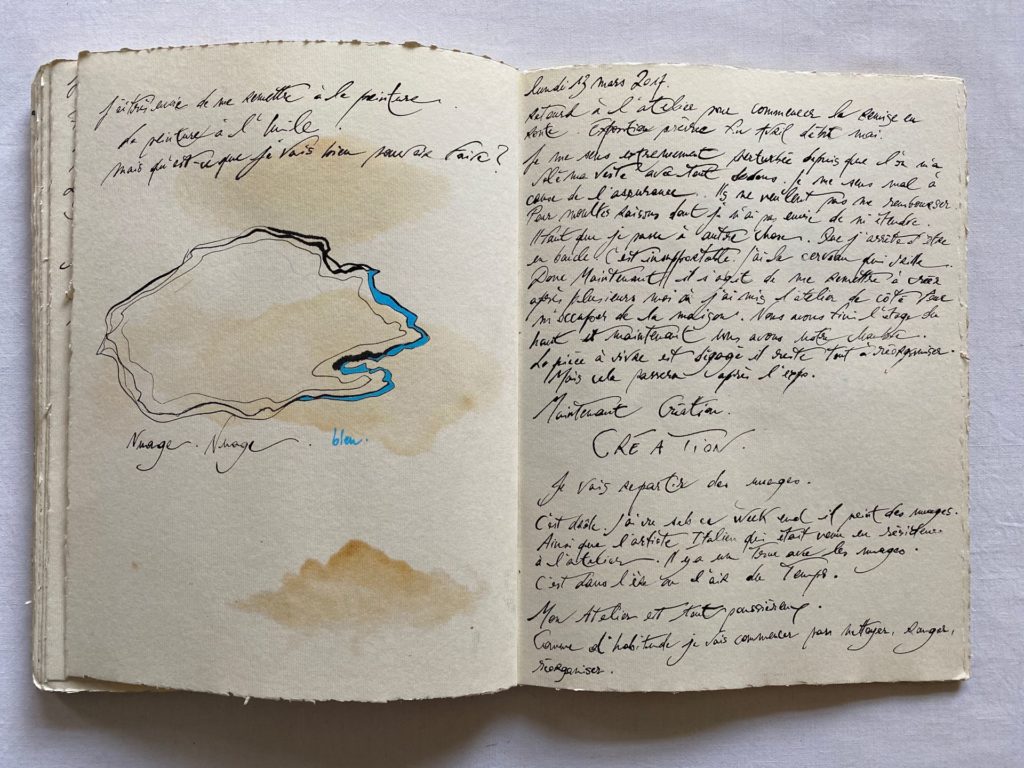 J'ai très envie de me remettre à la peinture.
La peinture à l'huile.
Mais qu'est ce que je vais bien pouvoir faire?
Nuage. Nuage. bleu.
lundi 13 mars 2017.
Retour à l'atelier pour commencer la remise en
route. Exposition prévue fin avril début mai.
Je me sens extrêmement perturbée depuis que l'on m'a
volé ma veste avec tout dedans. Je me sens mal à
cause de l'assurance. Ils ne veulent pas me rembourser.
Pour moultes raisons dont je n'ai pas envie de m'étendre.
Il faut que je passe à autre chose. Que j'arrête d'être
en boucle c'est insupportable. J'ai le cerveau qui
Donc Maintenant il s'agit de me remettre à créer
après plusieurs mois où j'ai mis l'atelier de côté pour
m'occuper de la maison. Nous avons fini l'étage du
haut et maintenant nous avons notre chambre.
La pièce à vivre est il reste tout à réorganiser.
Mais cela passera après l'expo.
Maintenant Création.
CREATION.
Je vais repartir des nuages.
C'est drôle. J'ai vu seb ce week end il peint des nuages.
Ainsi que l'artiste Italien qui était venu en résidence
à l'atelier. Il y a un truc avec les nuages.
C'est dans l'ère ou l'air du Temps.
Mon Atelier est tout poussiéreux.
Comme d'habitude je vais commencer par nettoyer, ranger,
réorganiser.